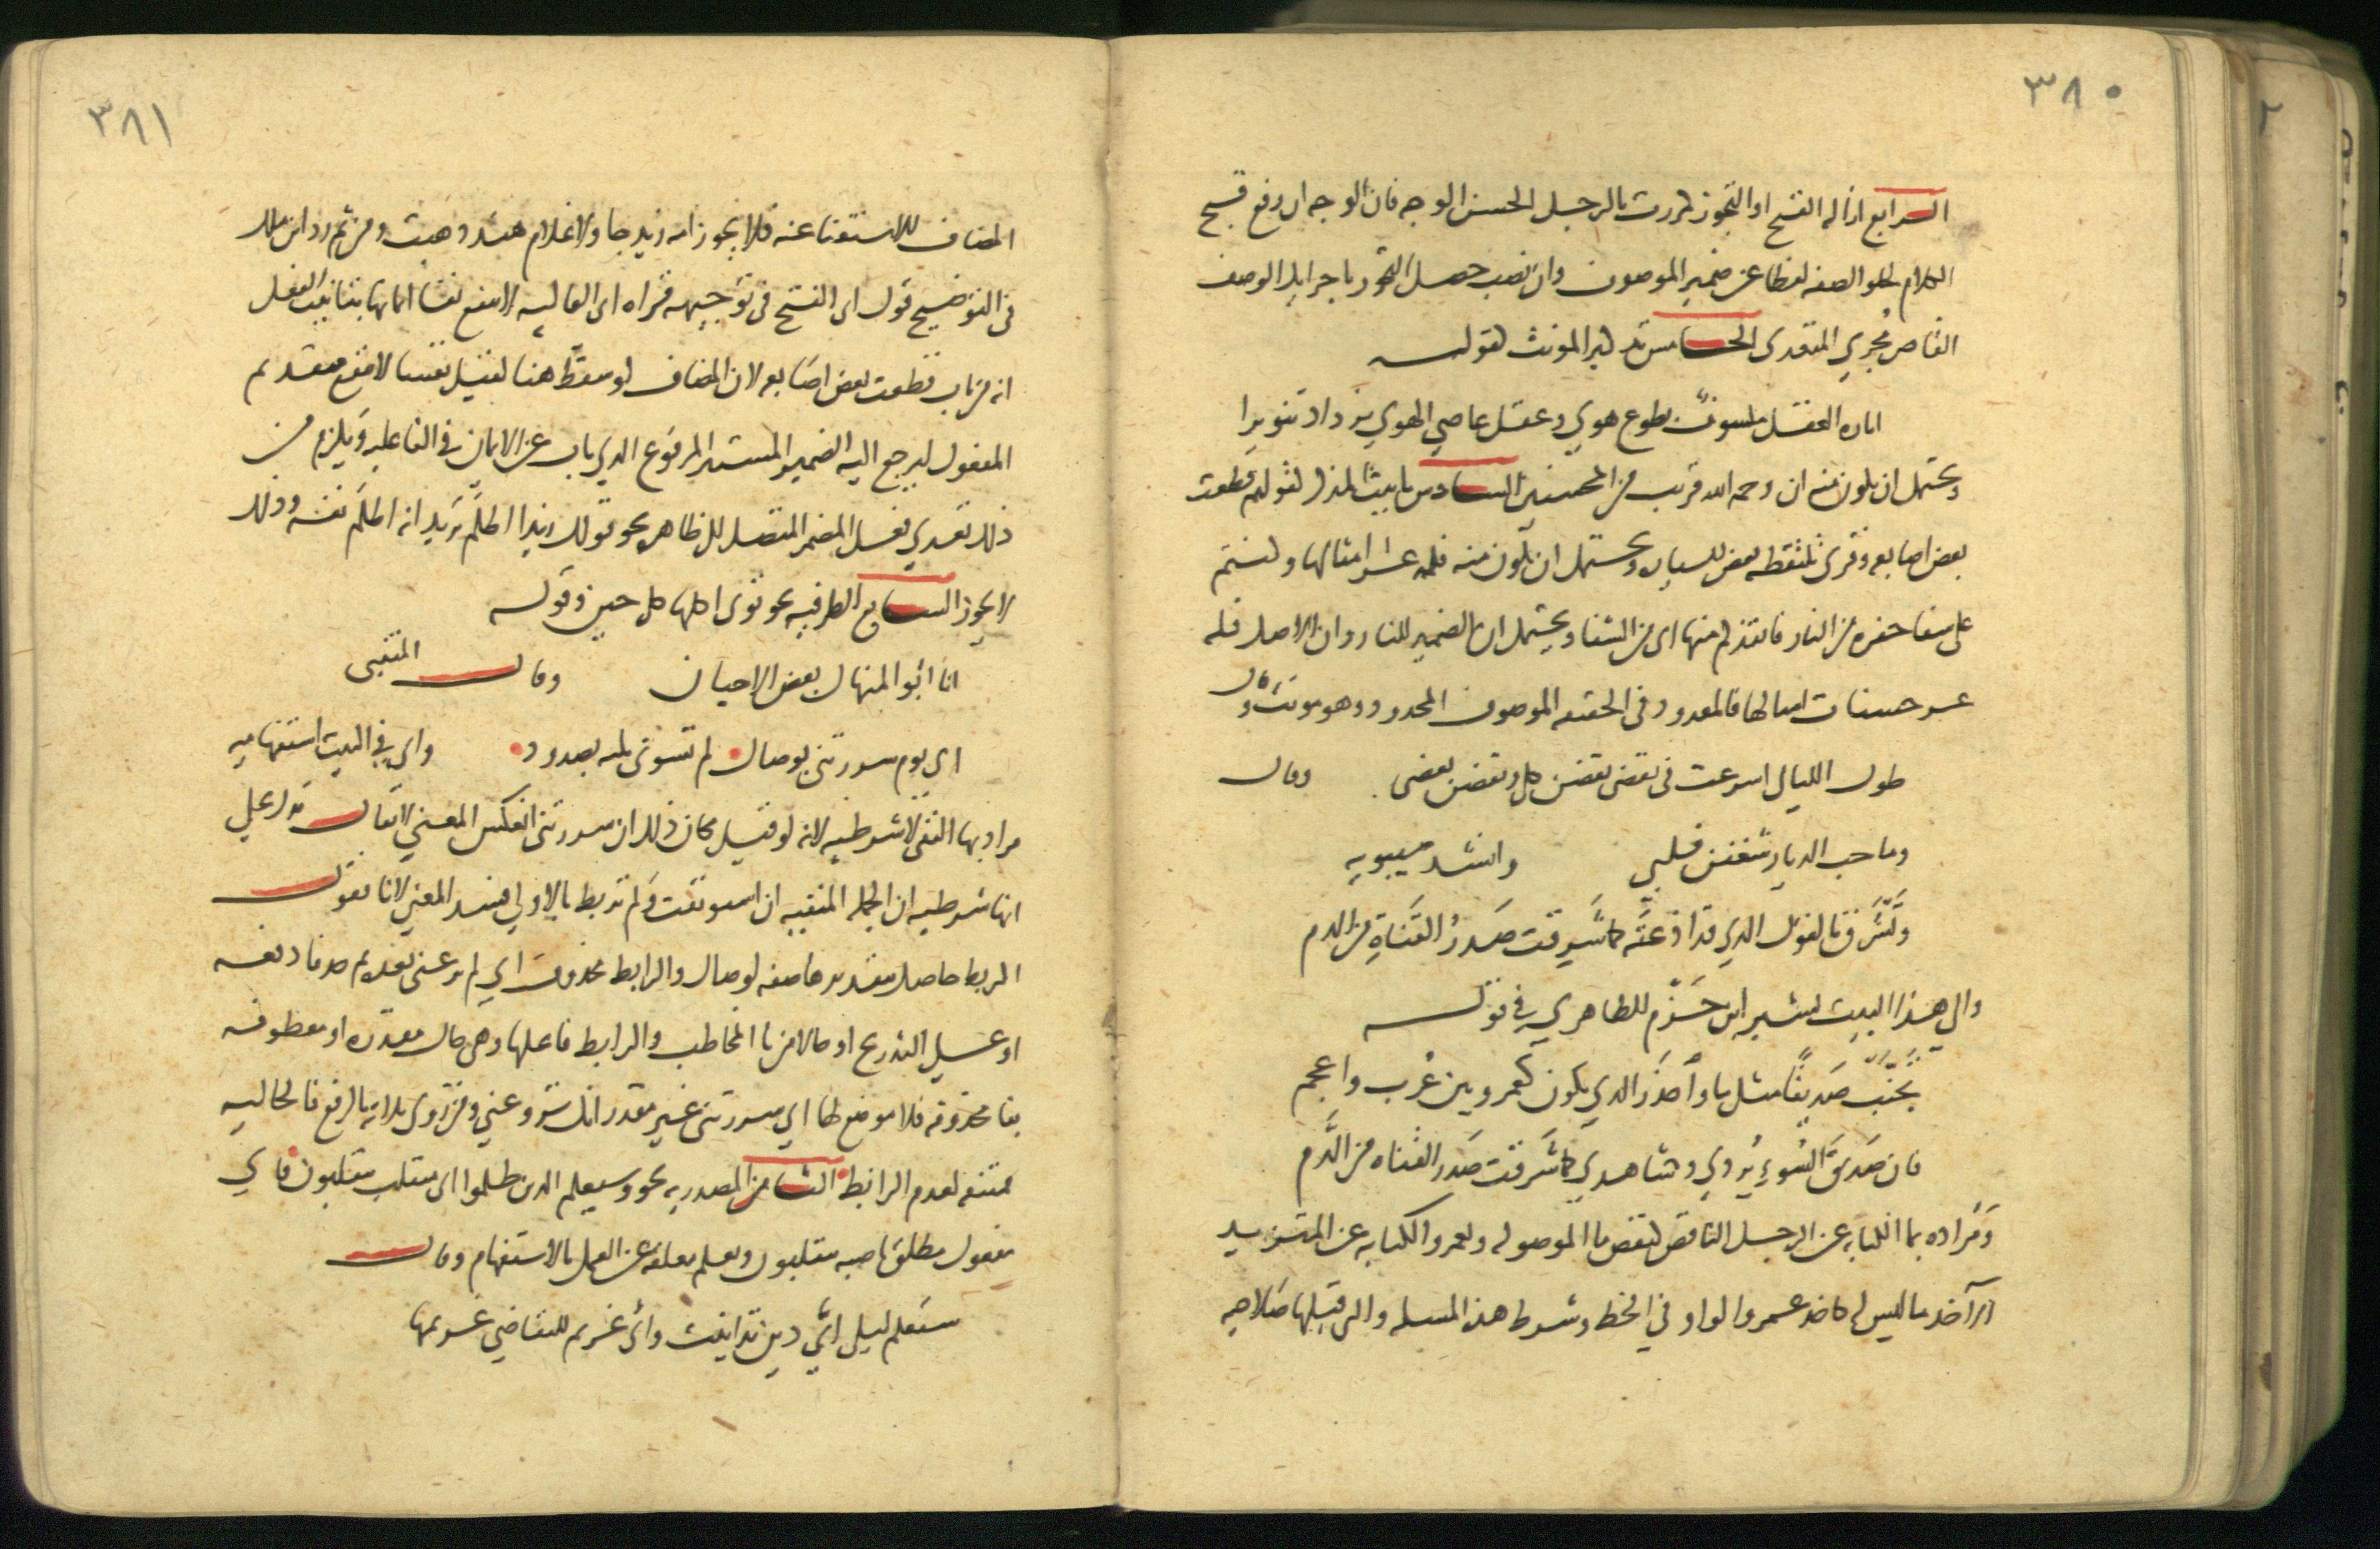 ٣٨٠
الرابع ازاله القبح او التجوز كمررت بالرجل الحسن الوجه فان الوجه ان رفع قبح
الكلام لخلو الصفه لفظا عن ضمير الموصوف وان نصب حصل التجوز باجرايك الوصف
القاصر مُجري المتعدى الخامس تذكير المونث كقولـــه
اناره العقل مكسوف بطوع هوي وعقل عاصي الهوي يزداد تنويرا
ويحتمل ان يكون منه ان رحمه الله قريب من المحسنين السادس تانيث المذكر كقولهم قطعت
بعض اصابعه وقرى تلتقطه بعض السياره ويحتمل ان يكون منه فله عشر امثالها وكنتم
على شفا حفره من النار فانقذكم منها اى من الشفا ويحتمل ان الضمير للنار وان الاصل فله
عشر حسنات امثالها فالمعدود في الحقيقه الموصوف المحذوف وهو مونث وقال
طول الليالى اسرعت فى نقضى نقضن كلى ونقضن بعضى وقال
وما حب الديار شغفن قلبي وانشد سيبويه
وتَشْرَق بالقول الذي قد اذعتَه كما شَرِقت صَدرُ القَناةِ من الدم
والى هذا البيت يشير ابن حَزم الظاهري في قوله
تجنَّب صَديقًا مثل ما واحذر الذي يكون كعمرو بين عُرب واعجم
فان صَديق السُوءِ يُزري وشاهدي كما شَرِقت صَدر القناه من الدَّم
ومُراده بما الكنايه عن الرجل الناقص كنقص ما الموصوله وبعمرو الكنايه عن المتزيد
الآخذ ما ليس له كاخذ عمرو الواو في الخط وشرط هذه المسله والتى قبلها صَلاحيه
٣٨١
المضاف للاستغنا عنه فلا يجوز امه زيد جا ولا غلام هند ذهبت ومن ثم رد ابن مالك
في التوضيح قول ابى الفتح فى توجيهه قراه ابى العاليه لا تنفع نفسا ايمانها بتانيث الفعل
انه من باب قطعت بعض اصَابعه لان المضاف لو سقط هنا لقيل نفسا لا تنفع بتقديم
المفعول ليرجع اليه الضمير المستتر المرفوع الذي ناب عن الايمان في الفاعليه ويلزم من
ذلك تعدي فعل المضمر المتصل الى ظاهره نحو قولك زيدا اظلم تريد انه اظلم نفسه وذلك
لا يجوز السابع الظرفيه نحو توتى اكلها كل حين وقوله
انا ابو المنهال بعض الاحيان وقال المتنبى
اي يوم سررتنى بوصال لم تسوني ثلثه بصدود واي في البيت استفهاميه
مراد بها النفى لا شرطيه لانه لو قيل مكان ذلك ان سررتنى انعكس المعني لا يقال يدل على
انها شرطيه ان الجمله المنفيه ان استونفت ولم تربط بالاولي فسد المعني لانا نقول
الربط حاصل بتقديرها صفه لوصال والرابط محذوف اي لم ترعنى بعده ثم حذفا دفعه
او على التدريج او حالا من تا المخاطب والرابط فاعلها وهى حال مقدره او معطوفه
بفا محذوفه فلا موضع لها اي سررتنى غير مقدر انك تروعني ومن روى ثلاثه بالرفع فالحاليه
ممتنعه لعدم الرابط الثامن المصدريه نحو وسيعلم الذين ظلموا اى منقلب ينقلبون فاي
مفعول مطلق ناصبه ينقلبون ويعلم معلقه عن العمل بالاستفهام وقال
ستعلم ليلى ايَّ دين تداينت وايُّ غريم للتقاضي غريمها